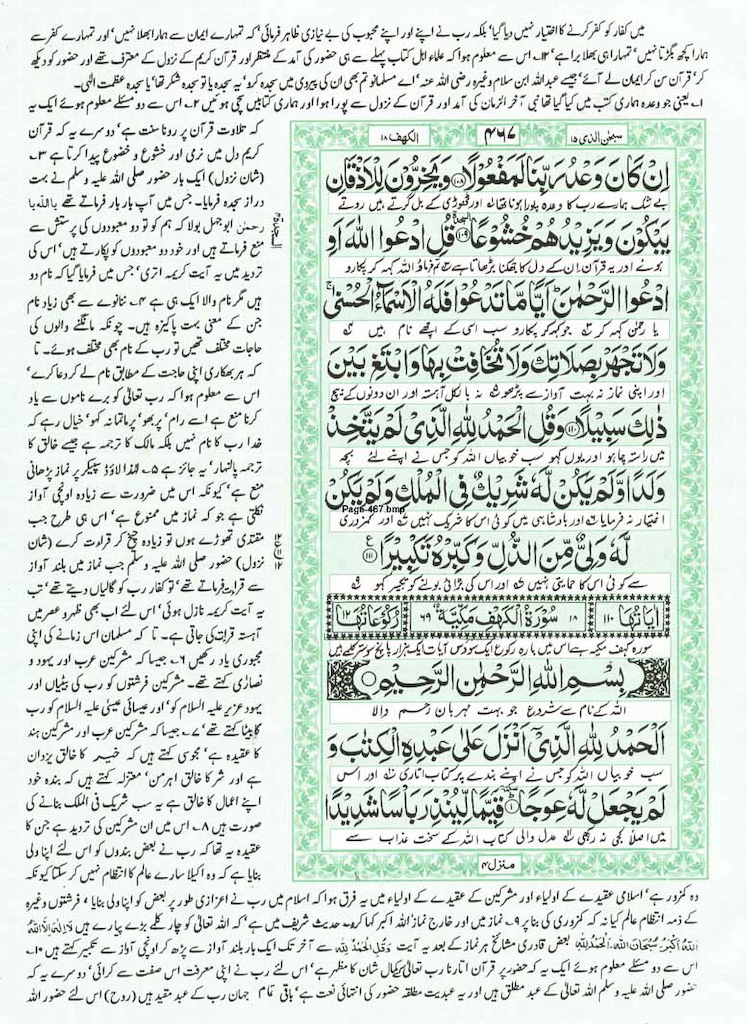 میں کفار کو کفر کرنے کا اختیار نہیں دیا گیا' بلکہ رب نے اپنے اور اپنے محبوب کی بے نیازی ظاہر فرمائی' کہ تمہارے ایمان سے ہمارا بھلا نہیں' اور تمہارے کفر سے
ہمارا کچھ بگڑتا نہیں' تمہارا ہی بھلا برا ہے' ۱۳۔ اس سے معلوم ہوا کہ علماء اہل کتاب پہلے سے ہی حضور کی آمد کے منتظر اور قرآن کریم کے نزول کے معترف تھے اور حضور کو دیکھ
کر' قرآن سن کر ایمان لے آئے' جیسے عبداللہ ابن سلام وغیرہ رضی اللہ عنہ' اے مسلمانو تم بھی ان کی پیروی میں سجدہ کرو' یہ سجدہ یا تو سجدہ شکر تھا' یا سجدہ عظمت الٰہی۔
۱۔ یعنی جو وعدہ ہماری کتب میں کیا گیا تھا نبی آخر الزمان کی آمد اور قرآن کے نزول سے پورا ہوا اور ہماری کتابیں سچی ہو گئیں ۲۔ اس سے دو مسئلے معلوم ہوئے ایک یہ
سبحٰن الذی ۱۵
۴۶۷
الکہف ۱۸
اِنْ كَانَ وَعْدُ رَبِّنَا لَمَفْعُوْلًا ۱۰۸ وَيَخِرُّوْنَ لِلْاَذْقَانِ
بے شک ہمارے رب کا وعدہ پورا ہونا تھا اور ٹھوڑی کے بل گرتے ہیں روتے
يَبْكُوْنَ وَيَزِيْدُهُمْ خُشُوْعًا ۱۰۹ قُلِ ادْعُوا اللّٰهَ اَوِ
ہوئے اور یہ قرآن ان کے دل کا جھکنا بڑھاتا ہے تم فرماؤ اللہ کہہ کر پکارو
ادْعُوا الرَّحْمٰنَ اَيًّا مَّا تَدْعُوْا فَلَهُ الْاَسْمَآءُ الْحُسْنٰى
یا رحمٰن کہہ کر جو کہہ کر پکارو سب اسی کے اچھے نام ہیں
وَلَا تَجْهَرْ بِصَلَاتِكَ وَلَا تُخَافِتْ بِهَا وَابْتَغِ بَيْنَ
اور اپنی نماز نہ بہت آواز سے پڑھو نہ بالکل آہستہ اور ان دونوں کے بیچ
ذٰلِكَ سَبِيْلًا ۱۱۰ وَقُلِ الْحَمْدُ لِلّٰهِ الَّذِىْ لَمْ يَتَّخِذْ
میں راستہ چاہو اور یوں کہو سب خوبیاں اللہ کو جس نے اپنے لئے بچہ
وَلَدًا وَّلَمْ يَكُنْ لَّهٗ شَرِيْكٌ فِى الْمُلْكِ وَلَمْ يَكُنْ
Page-467.bmp
اختیار نہ فرمایا اور بادشاہی میں کوئی اس کا شریک نہیں اور کمزوری
لَّهٗ وَلِىٌّ مِّنَ الذُّلِّ وَكَبِّرْهُ تَكْبِيْرًا ۱۱۱
سے کوئی اس کا حمایتی نہیں اور اس کی بڑائی بولنے کو تکبیر کہو
اٰيَاتُهَا ۱۱۰
۱۸ سُوْرَةُ الْكَهْفِ مَكِّيَّةٌ ۶۹
رُكُوْعَاتُهَا ۱۲
سورہ کہف مکیہ ہے اس میں بارہ رکوع ایک سو دس آیات ایک ہزار پانچ سو ستر کلمے ہیں
بِسْمِ اللّٰهِ الرَّحْمٰنِ الرَّحِيْمِ
اللہ کے نام سے شروع جو بہت مہربان رحم والا
اَلْحَمْدُ لِلّٰهِ الَّذِىْٓ اَنْزَلَ عَلٰى عَبْدِهِ الْكِتٰبَ وَ
سب خوبیاں اللہ کو جس نے اپنے بندے پر کتاب اتاری اور اس
لَمْ يَجْعَلْ لَّهٗ عِوَجًا ۱ قَيِّمًا لِّيُنْذِرَ بَاْسًا شَدِيْدًا
میں اصلا کجی نہ رکھی عدل والی کتاب اللہ کے سخت عذاب سے
منزل ۴
السجدة ۴
کہ تلاوت قرآن پر رونا سنت ہے' دوسرے یہ کہ قرآن
کریم دل میں نرمی اور خشوع و خضوع پیدا کرتا ہے ۳۔
(شان نزول) ایک بار حضور صلی اللہ علیہ وسلم نے بہت
دراز سجدہ فرمایا۔ جس میں آپ بار بار فرماتے تھے یا اللہ یا
رحمٰن ابوجہل بولا کہ ہم کو تو دو معبودوں کی پرستش سے
منع فرماتے ہیں اور خود دو معبودوں کو پکارتے ہیں' اس کی
تردید میں یہ آیت کریمہ اتری' جس میں فرمایا گیا کہ نام دو
ہیں مگر نام والا ایک ہی ہے ۴۔ ننانوے سے بھی زیادہ نام
جن کے معنی بہت پاکیزہ ہیں۔ چونکہ مانگنے والوں کی
حاجات مختلف تھیں تو رب کے نام بھی مختلف ہوئے۔ تا
کہ ہر بھکاری اپنی حاجت کے مطابق نام لے کر دعا کرے'
اس سے معلوم ہوا کہ رب تعالیٰ کو برے ناموں سے یاد
کرنا منع ہے اسے رام' پربھو' پرماتما نہ کہو' خیال رہے کہ
خدا رب کا نام نہیں بلکہ مالک کا ترجمہ ہے جیسے خالق کا
ترجمہ پالنہار' یہ جائز ہے ۵۔ لہٰذا لاؤڈ سپیکر پر نماز پڑھانی
منع ہے' کیونکہ اس میں ضرورت سے زیادہ اونچی آواز
نکلتی ہے جو کہ نماز میں ممنوع ہے' اس ہی طرح جب
مقتدی تھوڑے ہوں تو زیادہ چیخ کر قراءت کرے (شان
نزول) حضور صلی اللہ علیہ وسلم جب نماز میں بلند آواز
سے قراءت فرماتے تھے' تو کفار رب کو گالیاں دیتے تھے' تب
یہ آیت کریمہ نازل ہوئی' اس لئے اب بھی ظہر و عصر میں
آہستہ قراءت کی جاتی ہے۔ تا کہ مسلمان اس زمانے کی اپنی
مجبوری یاد رکھیں ۶۔ جیسا کہ مشرکین عرب اور یہود و
نصاریٰ کہتے تھے۔ مشرکین فرشتوں کو رب کی بیٹیاں اور
یہود عزیر علیہ السلام کو' اور عیسائی عیسیٰ علیہ السلام کو رب
کا بیٹا کہتے تھے' ۷۔ جیسا کہ مشرکین عرب اور مشرکین ہند
کا عقیدہ ہے' مجوسی کہتے ہیں کہ خیر کا خالق یزدان
ہے اور شر کا خالق اہرمن' معتزلہ کہتے ہیں کہ بندہ خود
اپنے اعمال کا خالق ہے یہ سب شریک فی الملک بنانے کی
صورت ہیں ۸۔ اس میں ان مشرکین کی تردید ہے جن کا
عقیدہ یہ تھا کہ رب نے بعض بندوں کو اس لئے اپنا ولی
بنایا ہے کہ وہ اکیلا سارے عالم کا انتظام نہیں کر سکتا کیونکہ
وہ کمزور ہے' اسلامی عقیدے کے اولیاء اور مشرکین کے عقیدے کے اولیاء میں یہ فرق ہوا کہ اسلام میں رب نے اعزازی طور پر بعض کو اپنا ولی بنایا' فرشتوں وغیرہ
کے ذمہ انتظام عالم کیا نہ کہ کمزوری کی بنا پر ۹۔ نماز میں اور خارج نماز اللہ اکبر کہا کرو۔ حدیث شریف میں ہے' کہ اللہ تعالیٰ کو چار کلمے بڑے پیارے ہیں لَا اِلٰهَ اِلَّا اللّٰهُ
اَللّٰهُ اَكْبَرُ سُبْحَانَ اللّٰهِ اَلْحَمْدُ لِلّٰهِ بعض قادری مشائخ ہر نماز کے بعد یہ آیت وَقُلِ الْحَمْدُ لِلّٰهِ سے آخر تک ایک بار بلند آواز سے پڑھ کر اونچی آواز سے تکبیر کہتے ہیں ۱۰۔
اس سے دو مسئلے معلوم ہوئے ایک یہ کہ حضور پر قرآن اتارنا رب تعالیٰ کی کمال شان کا مظہر ہے' اس لئے رب نے اپنی معرفت اس صفت سے کرائی' دوسرے یہ کہ
حضور صلی اللہ علیہ وسلم اللہ تعالیٰ کے عبد مطلق ہیں اور یہ عبدیت مطلقہ حضور کی انتہائی نعت ہے' باقی تمام جہان رب کے عبد مقید ہیں (روح) اس لئے حضور اللہ